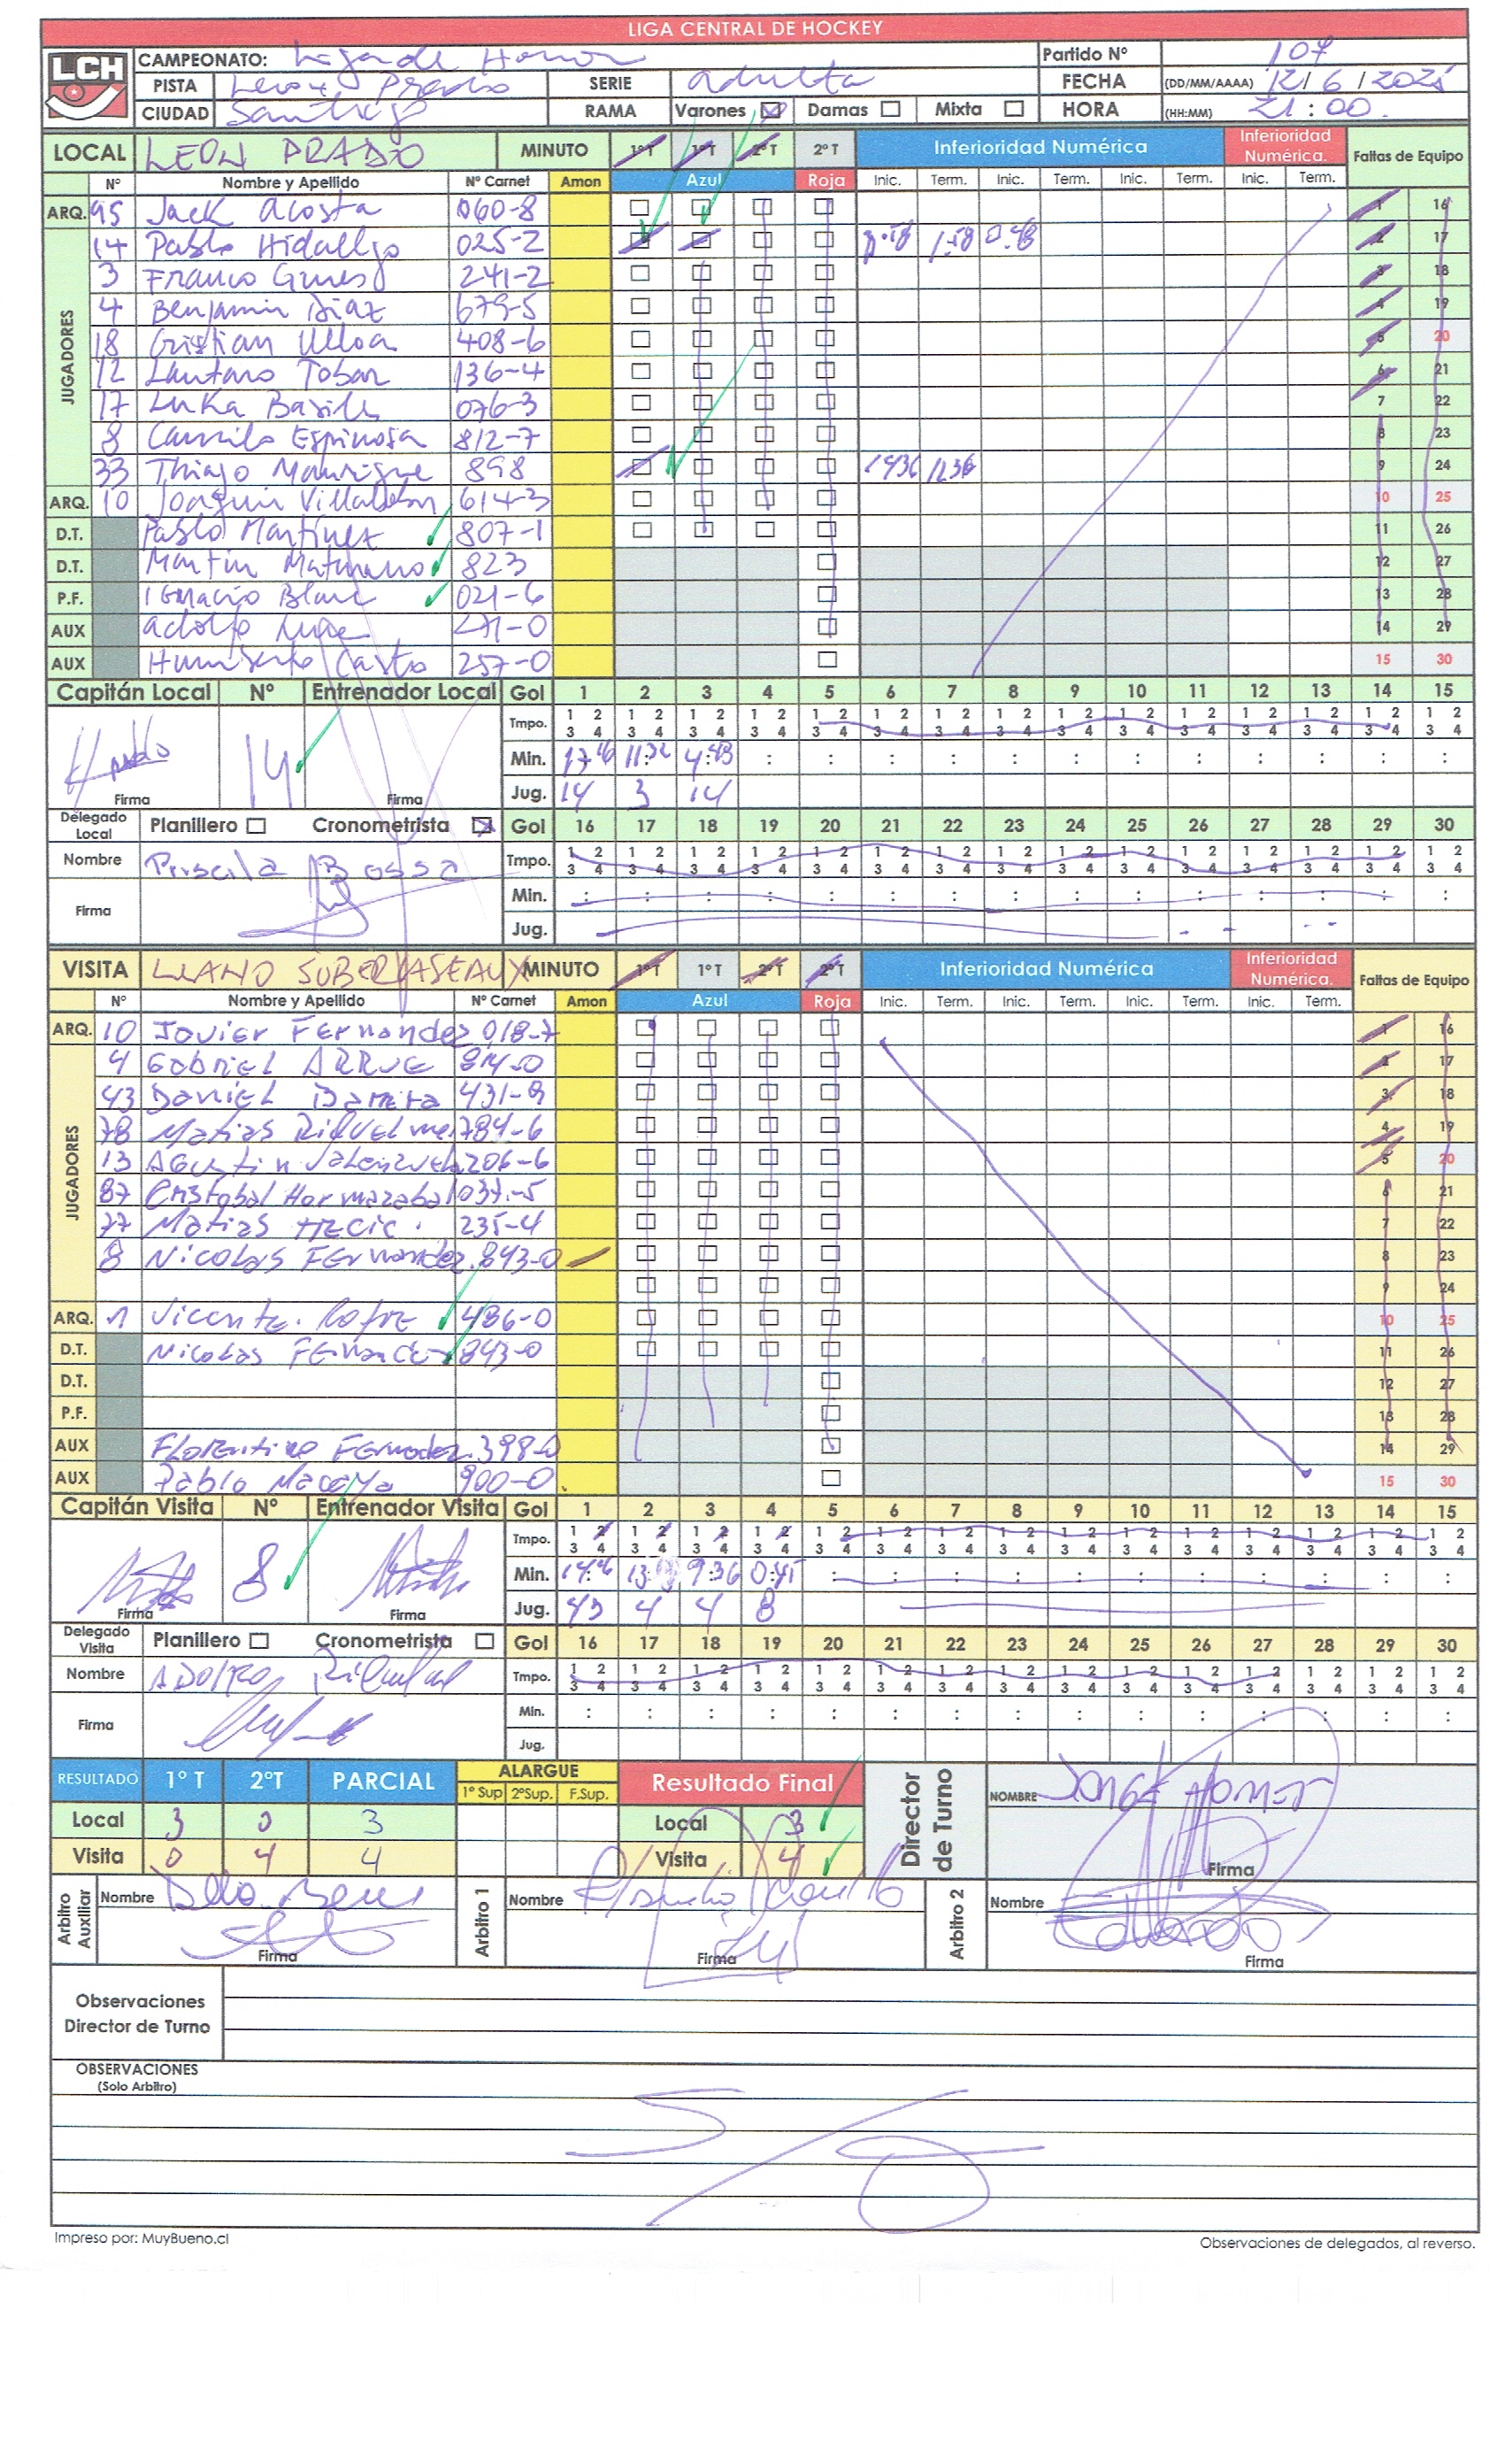 LIGA CENTRAL DE HOCKEY
LCH
CAMPEONATO: Liga de Honor Partido Nº 107
PISTA Leon Prado SERIE adulta FECHA (DD/MM/AAAA) 12/6/2025
CIUDAD Santiago RAMA Varones Damas Mixta HORA (HH:MM) 21:00
LOCAL LEON PRADO MINUTO 1º T 1º T 2º T 2º T Inferioridad Numérica Inferioridad Numérica. Faltas de Equipo
Nº Nombre y Apellido Nº Carnet Amon Azul Roja Inic. Term. Inic. Term. Inic. Term. Inic. Term.
ARQ. 95 Jack Acosta 060-8 1 16
JUGADORES
14 Pablo Hidalgo 025-2 1:58 0:48 2 17
3 Franco 241-2 3 18
4 Benjamin Diaz 679-5 4 19
18 Cristian Ulloa 408-6 5 20
12 Lautaro Tobar 136-4 6 21
17 Luka 076-3 7 22
8 Camilo Espinosa 812-7 8 23
33 Thiago Manrique 898 1436 1236 9 24
ARQ. 10 Joaquin 614-3 10 25
D.T. Pablo Martinez 807-1 11 26
D.T. Martin 823 12 27
P.F. Ignacio Blanc 021-6 13 28
AUX adolfo 271-0 14 29
AUX Humberto Castro 257-0 15 30
Capitán Local Nº Entrenador Local Gol 1 2 3 4 5 6 7 8 9 10 11 12 13 14 15
Tmpo. 1 2 3 4 1 2 3 4 1 2 3 4 1 2 3 4 1 2 3 4 1 2 3 4 1 2 3 4 1 2 3 4 1 2 3 4 1 2 3 4 1 2 3 4 1 2 3 4 1 2 3 4 1 2 3 4 1 2 3 4
Min. 17:46 11:32 4:43 : : : : : : : : : : : :
14 Firma Firma Jug. 14 3 14
Delegado Local Planillero Cronometrista Gol 16 17 18 19 20 21 22 23 24 25 26 27 28 29 30
Nombre Priscila Bossa Tmpo. 1 2 3 4 1 2 3 4 1 2 3 4 1 2 3 4 1 2 3 4 1 2 3 4 1 2 3 4 1 2 3 4 1 2 3 4 1 2 3 4 1 2 3 4 1 2 3 4 1 2 3 4 1 2 3 4 1 2 3 4
Firma Min. : : : : : : : : : : : : : : :
Jug.
VISITA LLANO SUBERCASEAUX MINUTO 1º T 1º T 2º T 2º T Inferioridad Numérica Inferioridad Numérica. Faltas de Equipo
Nº Nombre y Apellido Nº Carnet Amon Azul Roja Inic. Term. Inic. Term. Inic. Term. Inic. Term.
ARQ. 10 Javier Fernandez 018-7 1 16
JUGADORES
4 GABRIEL ARRUE 814-0 2 17
43 Daniel Barrera 431-9 3 18
78 Matias Riquelme 784-6 4 19
13 Agustin Valenzuela 206-6 5 20
87 Cristobal Hormazabal 037-5 6 21
77 Matias 235-4 7 22
8 Nicolas Fernandez 843-0 8 23
9 24
ARQ. 1 Vicente Rofre 486-0 10 25
D.T. Nicolas Fernandez 843-0 11 26
D.T. 12 27
P.F. 13 28
AUX Florentino Fernandez 398-0 14 29
AUX Pablo Macaya 900-0 15 30
Capitán Visita Nº Entrenador Visita Gol 1 2 3 4 5 6 7 8 9 10 11 12 13 14 15
Tmpo. 1 2 3 4 1 2 3 4 1 2 3 4 1 2 3 4 1 2 3 4 1 2 3 4 1 2 3 4 1 2 3 4 1 2 3 4 1 2 3 4 1 2 3 4 1 2 3 4 1 2 3 4 1 2 3 4 1 2 3 4
Min. 9:36 0:45 : : : : : : : : : : :
8 Firma Firma Jug. 43 4 4 8
Delegado Visita Planillero Cronometrista Gol 16 17 18 19 20 21 22 23 24 25 26 27 28 29 30
Nombre ADOLFO Tmpo. 1 2 3 4 1 2 3 4 1 2 3 4 1 2 3 4 1 2 3 4 1 2 3 4 1 2 3 4 1 2 3 4 1 2 3 4 1 2 3 4 1 2 3 4 1 2 3 4 1 2 3 4 1 2 3 4 1 2 3 4
Firma Min. : : : : : : : : : : : : : : :
Jug.
RESULTADO 1º T 2ºT PARCIAL ALARGUE 1º Sup 2ºSup. F.Sup. Resultado Final Director de Turno NOMBRE JORGE
Local 3 0 3 Local 3
Visita 0 4 4 Visita 4 Firma
Arbitro Auxiliar Nombre Arbitro 1 Nombre Arbitro 2 Nombre
Firma Firma Firma
Observaciones
Director de Turno
OBSERVACIONES
(Solo Arbitro)
S/O
Impreso por: MuyBueno.cl Observaciones de delegados, al reverso.